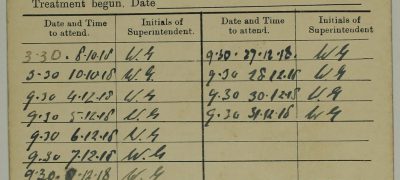 Treatment begun. Date
Date and Time to attend. Initials of Superintendent. Date and Time to attend. Initials of Superintendent.
3-30. 8.10.18 W.G 9.30. 27.12.18. W G
3-30 10.10.18 W.G. 9.30 28.12.18 W G
9.30 4.12.18 W G 9.30 30.12.18 W G
9.30 5.12.18 W G 9.30 31.12.18 W G
9.30 6.12.18 W.G
9.30 7.12.18 W.G
9.30. 12.18 W G